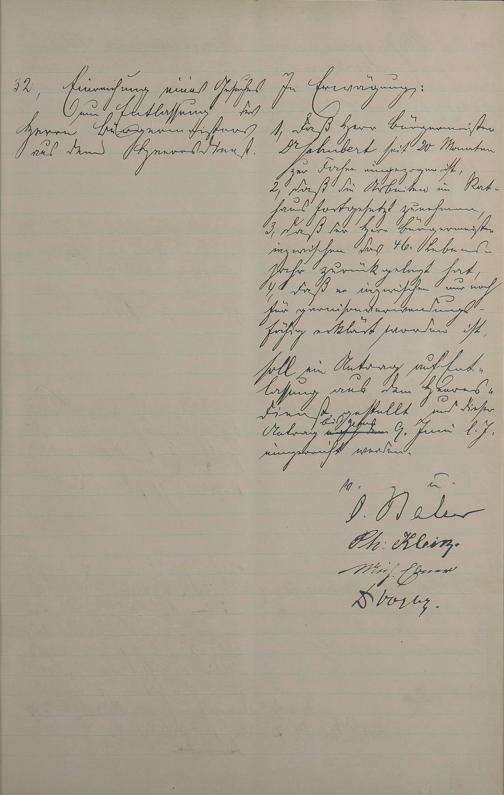 32, Einreichung eines Gesuches
um Entlassung des
Herrn Bürgermeisters
aus dem Heeresdienst.
In Erwägung:
1, daß Herr Bürgermeister
Dr. Schubert seit 20 Monaten
zur Fahne eingezogen ist,
2, daß die Arbeiten im Rat-
haus fortgesetzt zunehmen,
3, daß der Herr Bürgermeister
inzwischen das 46. Lebens-
jahr zurückgelegt hat,
4, daß er inzwischen nur noch
für garnisonverwendungs-
fähig erklärt worden ist,
soll ein Antrag auf Ent-
lassung aus dem Heeres-
dienst gestellt und dieser
Antrag 9. Juni l. J.
eingereicht werden.
v. g. u.
Ph. Klein.